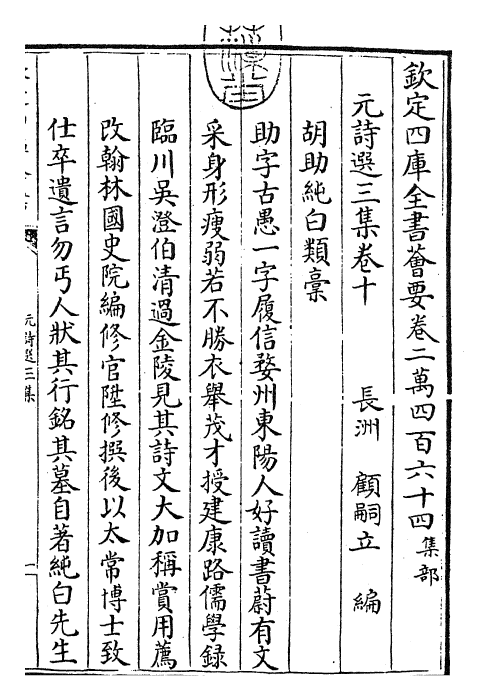 欽定四庫全書薈要卷二萬四百六十四集部
元詩選三集卷十　長洲　顧嗣立　編
胡助純白類稾
助字古愚一字履信婺州東陽人好讀書蔚有文
采身形瘦弱若不勝衣舉茂才授建康路儒學錄
臨川吳澄伯清過金陵見其詩文大加稱賞用薦
改翰林國史院編修官陞修撰後以太常博士致
仕卒遺言勿丐人狀其行銘其墓自著純白先生
元詩選三集
一